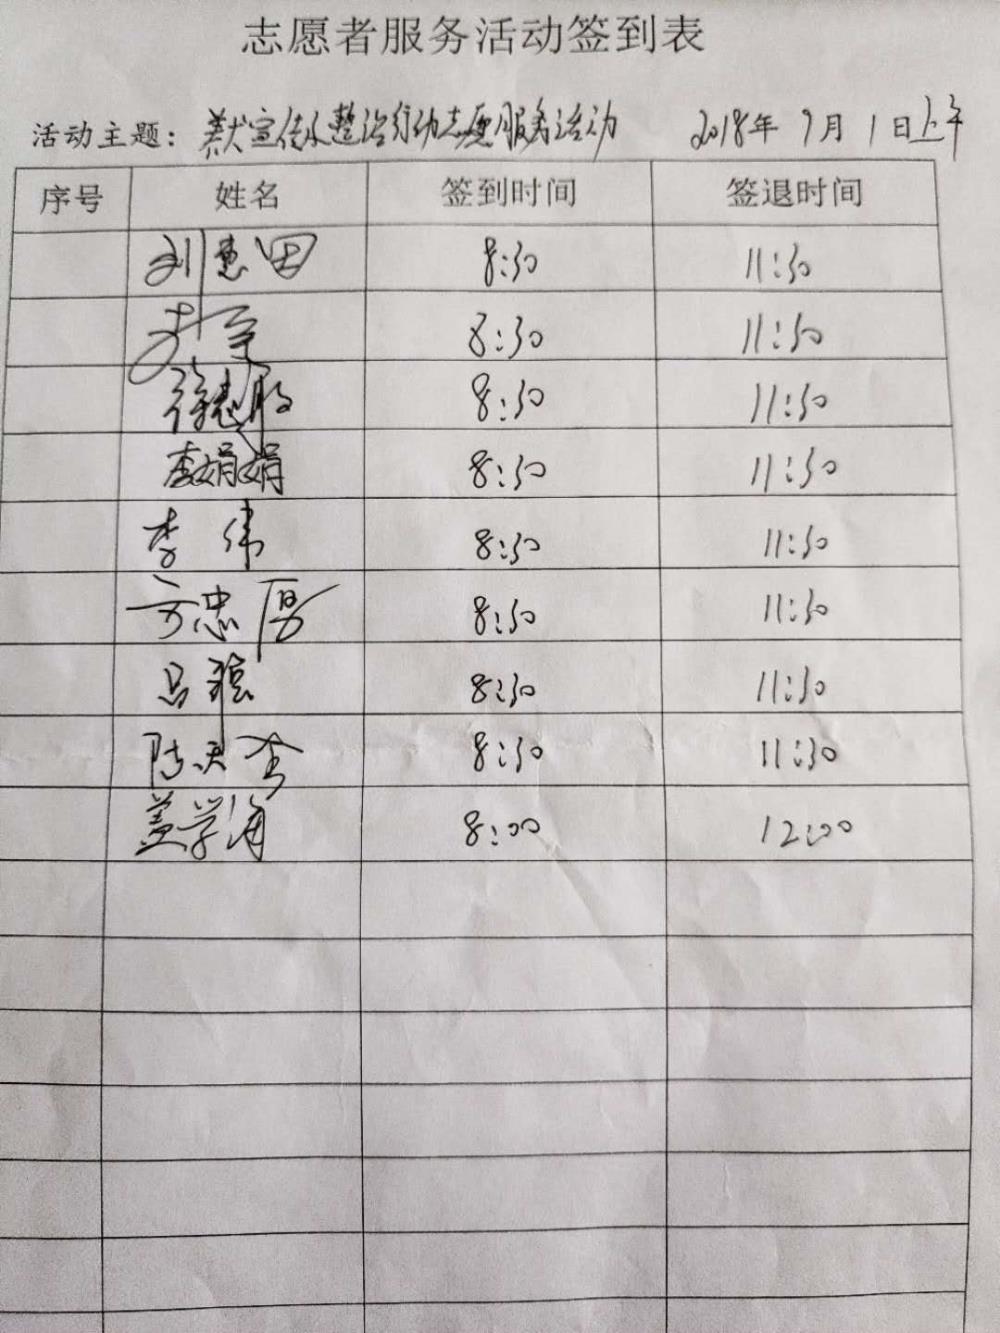 志愿者服务活动签到表
活动主题：养犬宣传及整治行动志愿服务活动 2018年9月1日上午
序号 姓名 签到时间 签退时间
刘惠田 8:30 11:30
8:30 11:30
徐志 8:30 11:30
李娟娟 8:30 11:30
李伟 8:30 11:30
方忠厚 8:30 11:30
吕 8:30 11:30
陈 8:30 11:30
盖学海 8:00 12:00